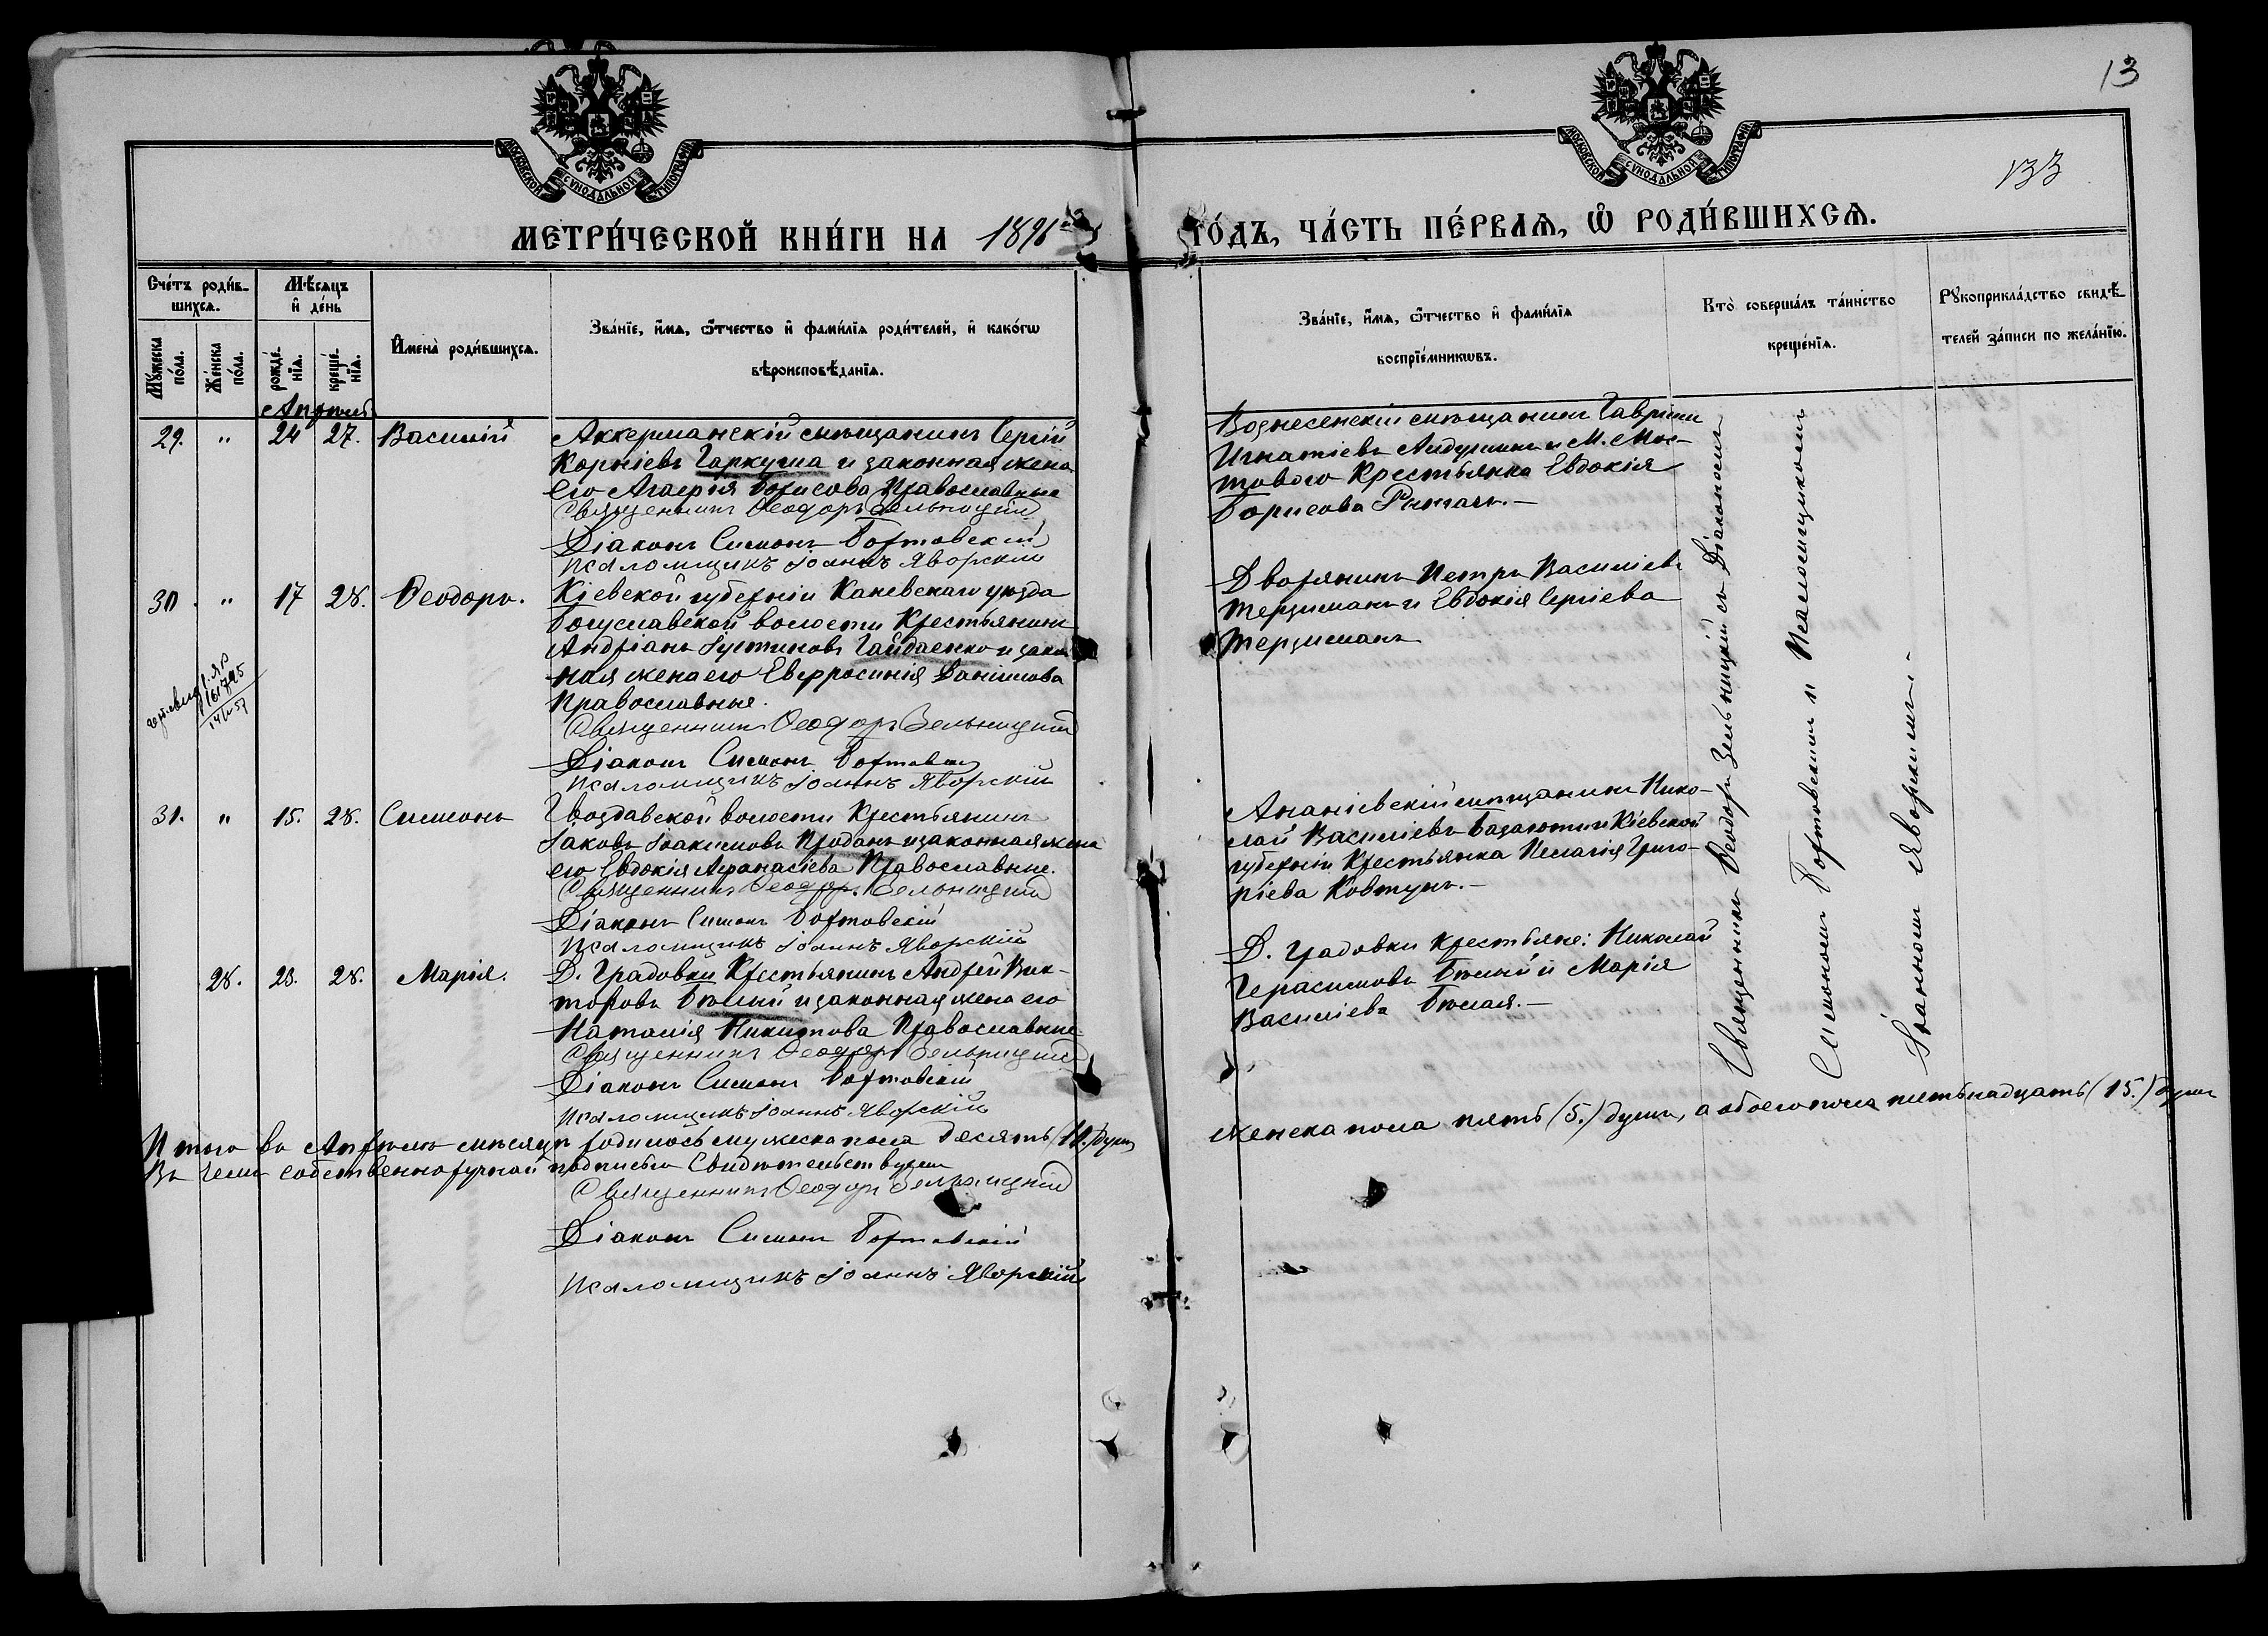 13
133
МОСКОВСКОЙ СѴНОДАЛЬНОЙ ТИПОГРАФІИ
МОСКОВСКОЙ СѴНОДАЛЬНОЙ ТИПОГРАФІИ
МЕТРИ́ЧЕСКОЙ КНИ́ГИ НА 1896 ГО́ДЪ, ЧА́СТЬ ПЕ́РВАѦ, Ѡ҆ РОДИ́ВШИХСѦ.
Сче́тъ роди́в-
шихсѧ.
Мꙋ́жеска по́ла.
Же́нска по́ла.
Мѣ́сѧцъ
и҆ де́нь
рожде́-
нїѧ.
креще́-
нїѧ.
И҆мена̀ роди́вшихсѧ.
Зва́нїе, и҆́мѧ, ѻ҆́тчество и҆ фами́лїѧ роди́телей, и҆ како́гѡ
вѣроисповѣ́данїѧ.
Зва́нїе, и҆́мѧ, ѻ҆́тчество и҆ фами́лїѧ
воспрїе́мникѡвъ.
Кто̀ соверша́лъ та́инство
креще́нїѧ.
Рꙋкоприкла́дство свидѣ́-
телей за́писи по жела́нїю.
Апрѣль
29. " 24 27. Василій
Аккерманскій мѣщанинъ Сергій
Корніевъ Гаркуша и законная жена
его Агафія Борисова Православные
Священникъ Ѳеодоръ Зельницкій
Діаконъ Симонъ Бортовскій
Псаломщикъ Іоаннъ Яворскій
Вознесенскій мѣщанинъ Гавріилъ
Игнатіевъ и М. Мос-
тового Крестьянка Евдокія
Борисова
30. " 17 28. Ѳеодоръ.
Кіевской губерніи Каневскаго уѣзда
Богуславской волости Крестьянинъ
Андріанъ Іустиновъ Гайдаенко и закон
ная жена его Евфросинія Даніилова
Православные.
Священникъ Ѳеодоръ Зельницкій
Діаконъ Симонъ Бортовскій
Псаломщикъ Іоаннъ Яворскій
Дворянинъ Петръ Василіевъ
Терзиманъ и Евдокія Сергіева
Терзиманъ
31. " 15. 28. Симеонъ
Гвоздавской волости Крестьянинъ
Іаковъ Іоакимовъ Проданъ и законная жена
его Евдокія Афанасіева Православные.
Священникъ Ѳеодоръ Зельницкій
Діаконъ Симонъ Бортовскій
Псаломщикъ Іоаннъ Яворскій
Ананіевскій мѣщанинъ Нико-
лай Василіевъ и Кіевской
губерніи Крестьянка Пелагія Григо-
ріева Ковтунъ.-
28. 23. 28. Марія.
Д. Градовки Крестьянинъ Андрей Вик-
торовъ Бѣлый и законная жена его
Наталія Никитова Православные
Священникъ Ѳеодоръ Зельницкій
Діаконъ Симонъ Бортовскій
Псаломщикъ Іоаннъ Яворскій
Д. Градовки Крестьяне: Николай
Герасимовъ Бѣлый и Марія
Василіева Бѣлая.-
Священникъ Ѳеодоръ Зельницкій съ Діакономъ
Симономъ Бортовскимъ и Псаломщикомъ
Іоанномъ Яворскимъ.-
Итого въ Апрѣлѣ мѣсяцѣ родилось мужеска пола десять (10.) душъ женска пола пять (5.) душъ, а обоего пола пятьнадцать (15.) душъ
Въ чемъ собственноручной подписью Свидѣтельствуемъ
Священникъ Ѳеодоръ Зельницкій
Діаконъ Симонъ Бортовскій
Псаломщикъ Іоаннъ Яворскій